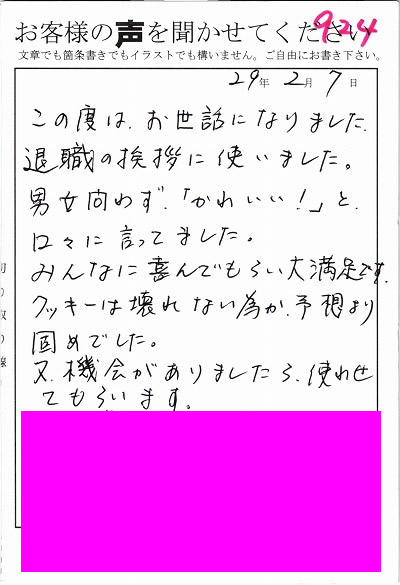 お客様の声を聞かせてください
924
文章でも箇条書きでもイラストでも構いません。ご自由にお書き下さい。
29年 2月 7日
この度は、お世話になりました。
退職の挨拶に使いました。
男女向わず、「かわいい！」と、
口々に言ってました。
みんなに喜んでもらい大満足です。
クッキーは壊れない為か、予想より
固めでした。
又、機会がありましたら、使わせ
てもらいます。